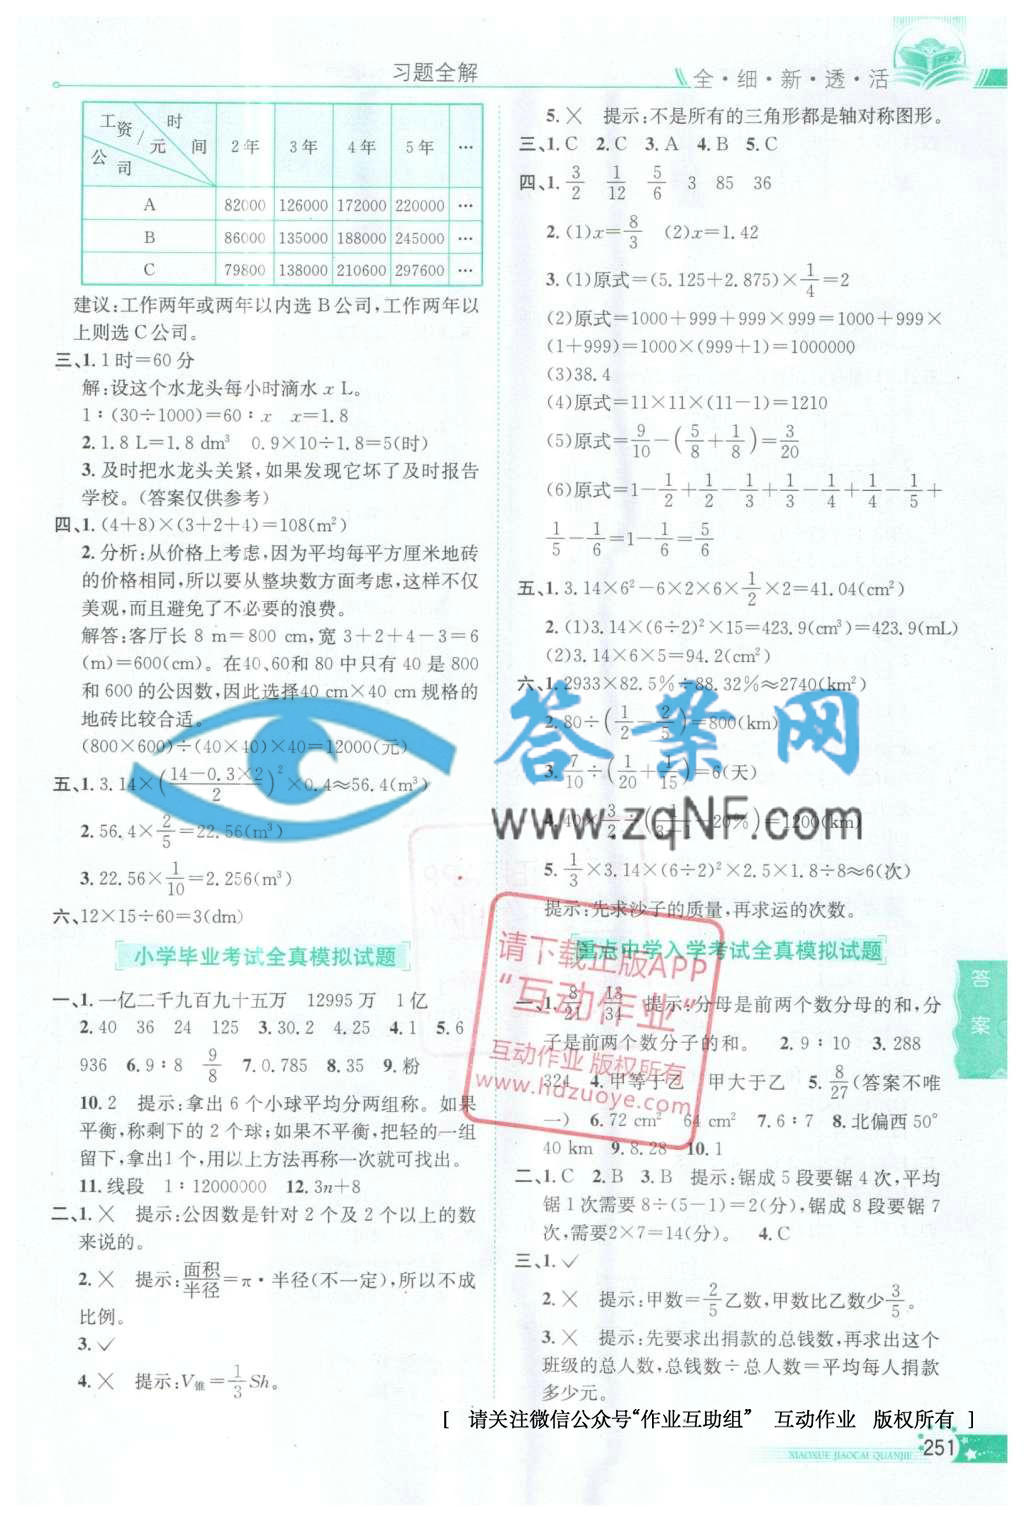 习题全解
全·细·新·透·活
工资/元 时间 公司 2年 3年 4年 5年 …
A 82000 126000 172000 220000 …
B 86000 135000 188000 245000 …
C 79800 138000 210600 297600 …
建议:工作两年或两年以内选B公司,工作两年以
上则选C公司。
三、1. 1时=60分
解:设这个水龙头每小时滴水 x L。
1∶(30÷1000)=60∶x x=1.8
2. 1.8 L=1.8 dm³ 0.9×10÷1.8=5(时)
3. 及时把水龙头关紧,如果发现它坏了及时报告
学校。(答案仅供参考)
四、1. (4+8)×(3+2+4)=108(m²)
2. 分析:从价格上考虑,因为平均每平方厘米地砖
的价格相同,所以要从整块数方面考虑,这样不仅
美观,而且避免了不必要的浪费。
解答:客厅长 8 m=800 cm,宽 3+2+4-3=6
(m)=600(cm)。在40、60和 80 中只有 40 是 800
和 600 的公因数,因此选择40 cm×40 cm 规格的
地砖比较合适。
(800×600)÷(40×40)×40=12000(元)
五、1. 3.14×((14-0.3×2)/2)²×0.4≈56.4(m³)
2. 56.4×2/5=22.56(m³)
3. 22.56×1/10=2.256(m³)
六、12×15÷60=3(dm)
小学毕业考试全真模拟试题
一、1. 一亿二千九百九十五万 12995万 1亿
2. 40 36 24 125 3. 30.2 4.25 4. 1 5. 6
936 6. 9∶8 9/8 7. 0.785 8. 35 9. 粉
10. 2 提示:拿出 6 个小球平均分两组称。如果
平衡,称剩下的 2 个球;如果不平衡,把轻的一组
留下,拿出1个,用以上方法再称一次就可找出。
11. 线段 1∶12000000 12. 3n+8
二、1. × 提示:公因数是针对 2 个及 2 个以上的数
来说的。
2. × 提示:面积/半径=π·半径(不一定),所以不成
比例。
3. ✓
4. × 提示:V锥=1/3Sh。
5. × 提示:不是所有的三角形都是轴对称图形。
三、1. C 2. C 3. A 4. B 5. C
四、1. 3/2 1/12 5/6 3 85 36
2. (1)x=8/3 (2)x=1.42
3. (1)原式=(5.125+2.875)×1/4=2
(2)原式=1000+999+999×999=1000+999×
(1+999)=1000×(999+1)=1000000
(3)38.4
(4)原式=11×11×(11-1)=1210
(5)原式=9/10-(5/8+1/8)=3/20
(6)原式=1-1/2+1/2-1/3+1/3-1/4+1/4-1/5+
1/5-1/6=1-1/6=5/6
五、1. 3.14×6²-6×2×6×1/2×2=41.04(cm²)
2. (1)3.14×(6÷2)²×15=423.9(cm³)=423.9(mL)
(2)3.14×6×5=94.2(cm²)
六、1. 2933×82.5%÷88.32%≈2740(km²)
2. 80÷(1/2-2/5)=800(km)
3. 7/10÷(1/20+1/15)=6(天)
4. 40×3/2÷(1/3-20%)=1200(km)
5. 1/3×3.14×(6÷2)²×2.5×1.8÷8≈6(次)
提示:先求沙子的质量,再求运的次数。
重点中学入学考试全真模拟试题
一、1. 8/21 13/34 提示:分母是前两个数分母的和,分
子是前两个数分子的和。 2. 9∶10 3. 288
324 4. 甲等于乙 甲大于乙 5. 8/27(答案不唯
一) 6. 72 cm² 64 cm² 7. 6∶7 8. 北偏西 50°
40 km 9. 8.28 10. 1
二、1. C 2. B 3. B 提示:锯成 5 段要锯 4 次,平均
锯 1 次需要 8÷(5-1)=2(分),锯成 8 段要锯 7
次,需要2×7=14(分)。 4. C
三、1. ✓
2. × 提示:甲数=2/5乙数,甲数比乙数少3/5。
3. × 提示:先要求出捐款的总钱数,再求出这个
班级的总人数,总钱数÷总人数=平均每人捐款
多少元。
答案
答案网
www.zqNF.com
请下载正版APP
“互动作业”
互动作业 版权所有
www.hdzuoye.com
[ 请关注微信公众号“作业互助组” 互动作业 版权所有 ]
251
XIAOXUE JIAOCAI QUANJIE